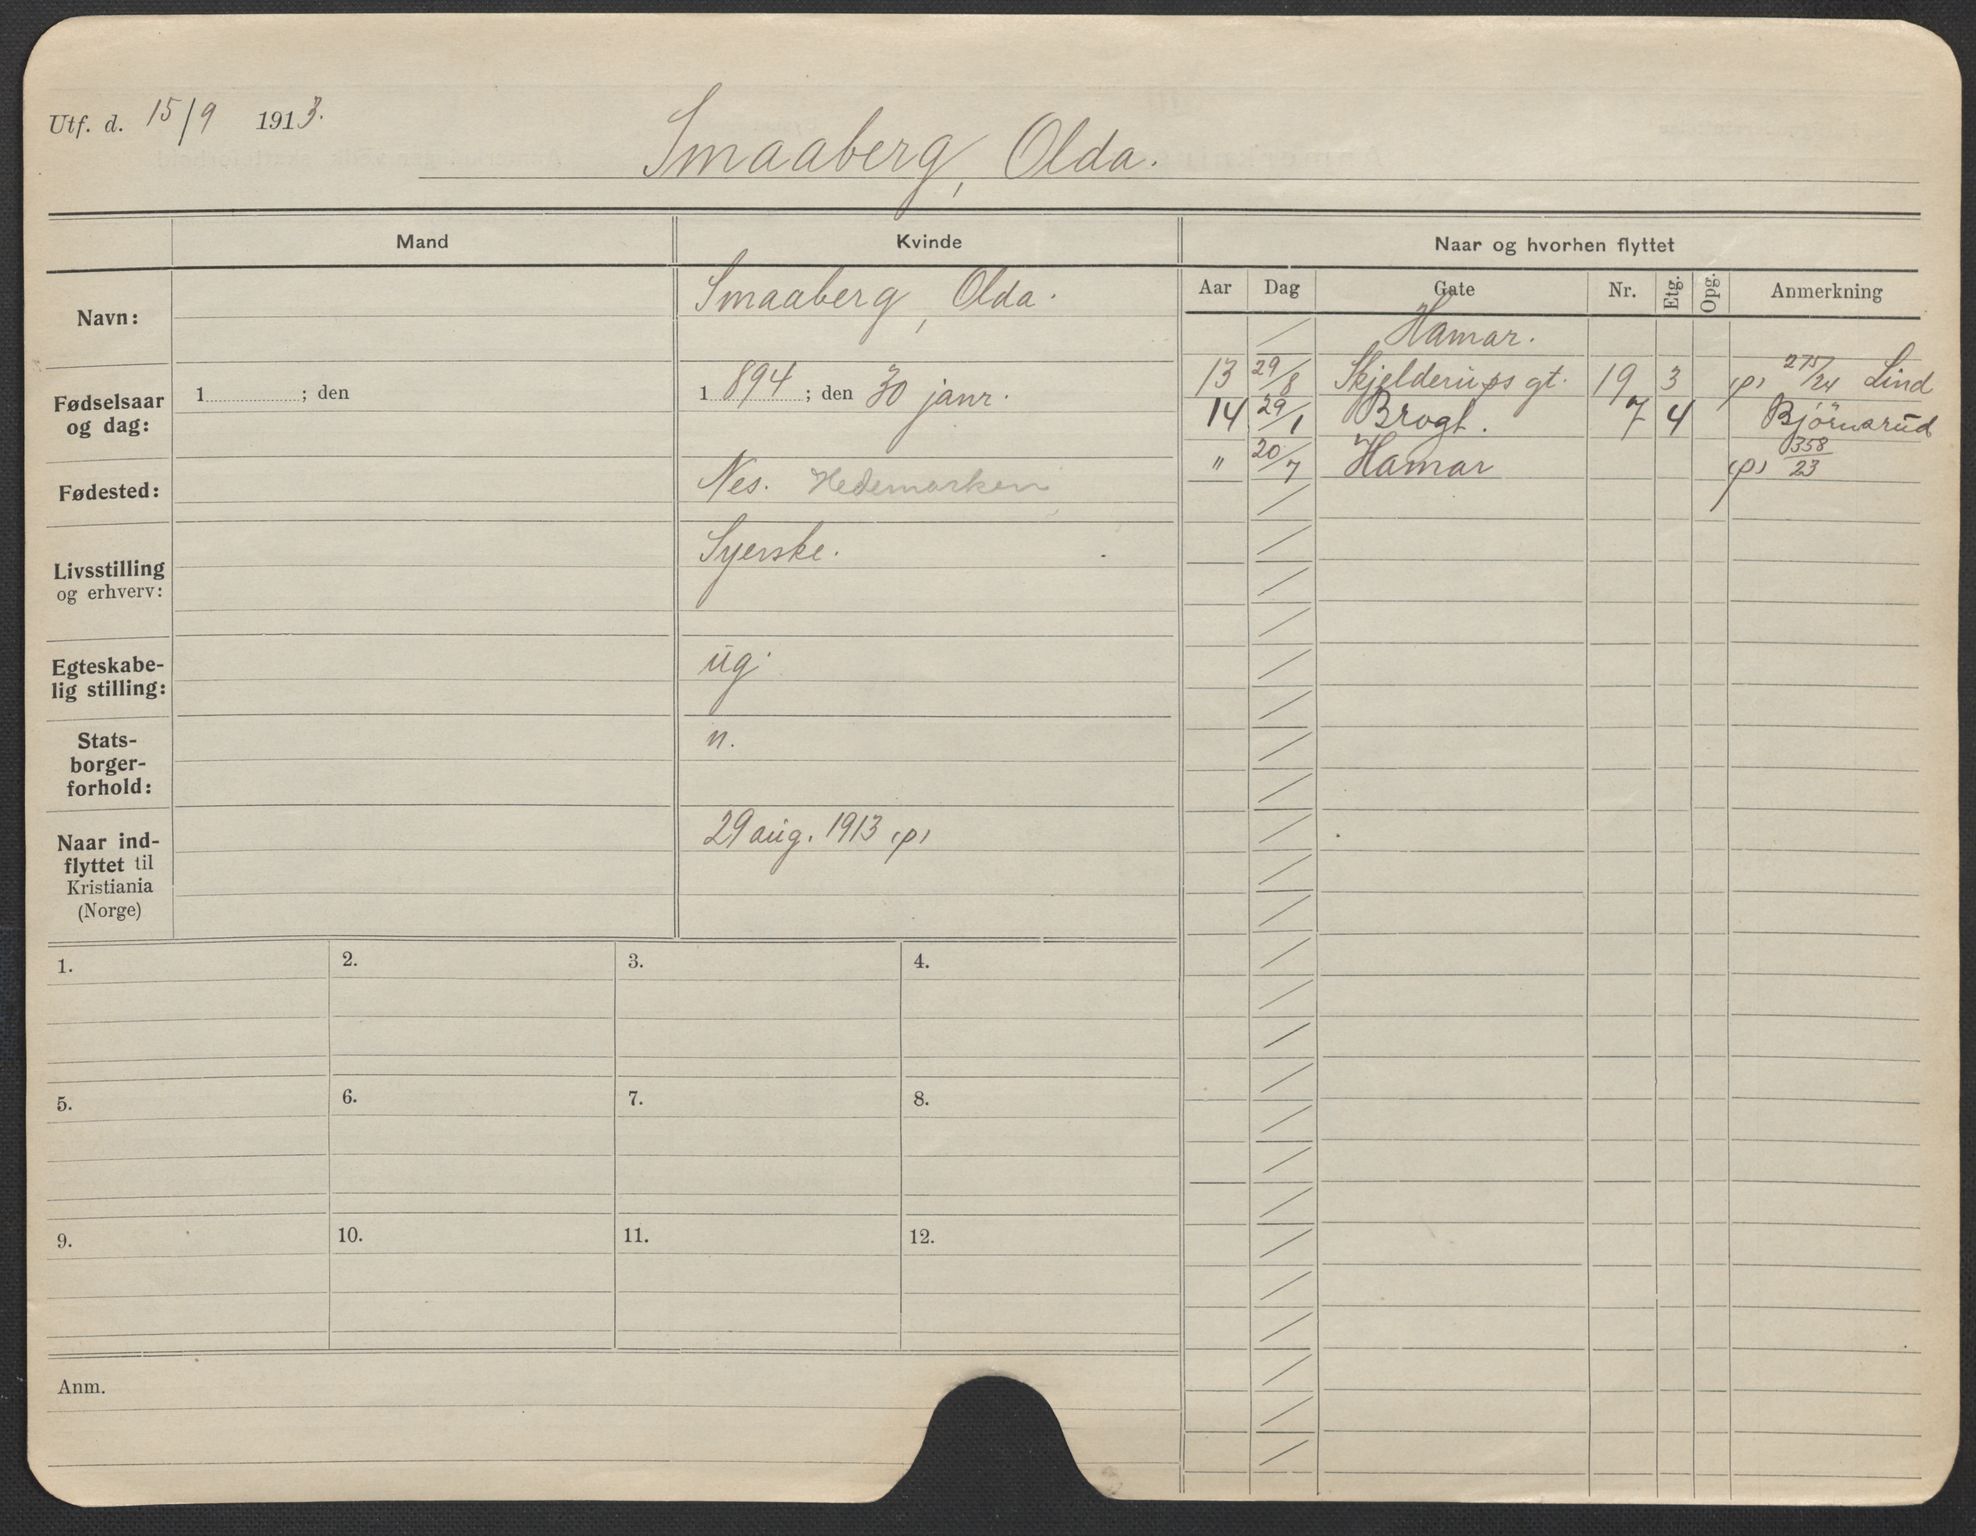 Utf. d. 15/9 1913.
Smaaberg, Olda.
Mand Kvinde Naar og hvorhen flyttet
Aar Dag Gate Nr. Etg. Opg. Anmerkning
Navn: Smaaberg, Olda.
Fødselsaar og dag: 1 ; den 1 894 ; den 30 janr.
Fødested: Nes. Hedemarken
Livsstilling og erhverv: Syerske.
Egteskabe-
lig stilling: ug.
Stats-
borger-
forhold: n.
Naar ind-
flyttet til
Kristiania
(Norge) 29 aug. 1913 (p)
Hamar.
13 29/8 Skjelderups gt. 19 3 (p) 275/24 Lind
14 29/1 Brogt. 7 4 Bjørnsrud
" 20/7 Hamar (p) 358/23
1. 2. 3. 4.
5. 6. 7. 8.
9. 10. 11. 12.
Anm.